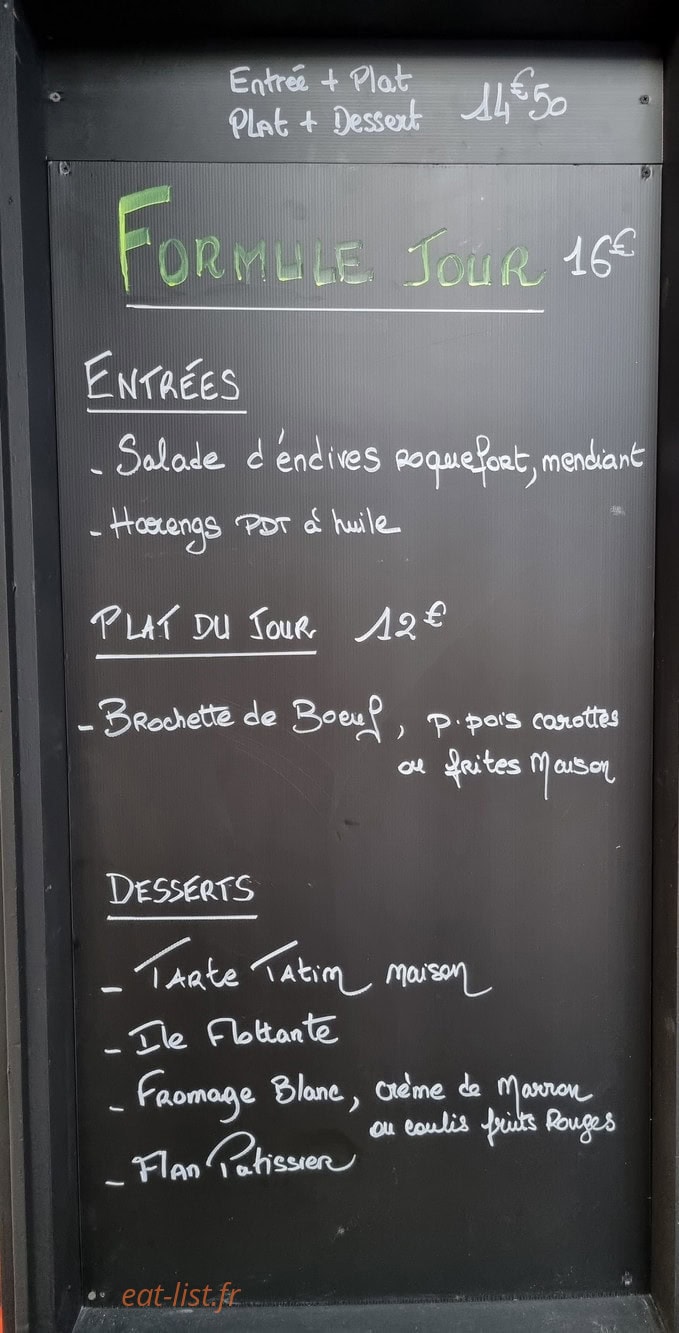 Entrée + Plat
Plat + Dessert 14€50
FORMULE JOUR 16€
ENTRÉES
- Salade d'éndives roquefort, mendiant
- Harengs PDT à huile
PLAT DU JOUR 12€
- Brochette de Boeuf, p. pois carottes
ou frites Maison
DESSERTS
- Tarte Tatim maison
- Ile Flottante
- Fromage Blanc, crème de Marron
ou coulis fruits Rouges
- Flan Patissier
eat-list.fr